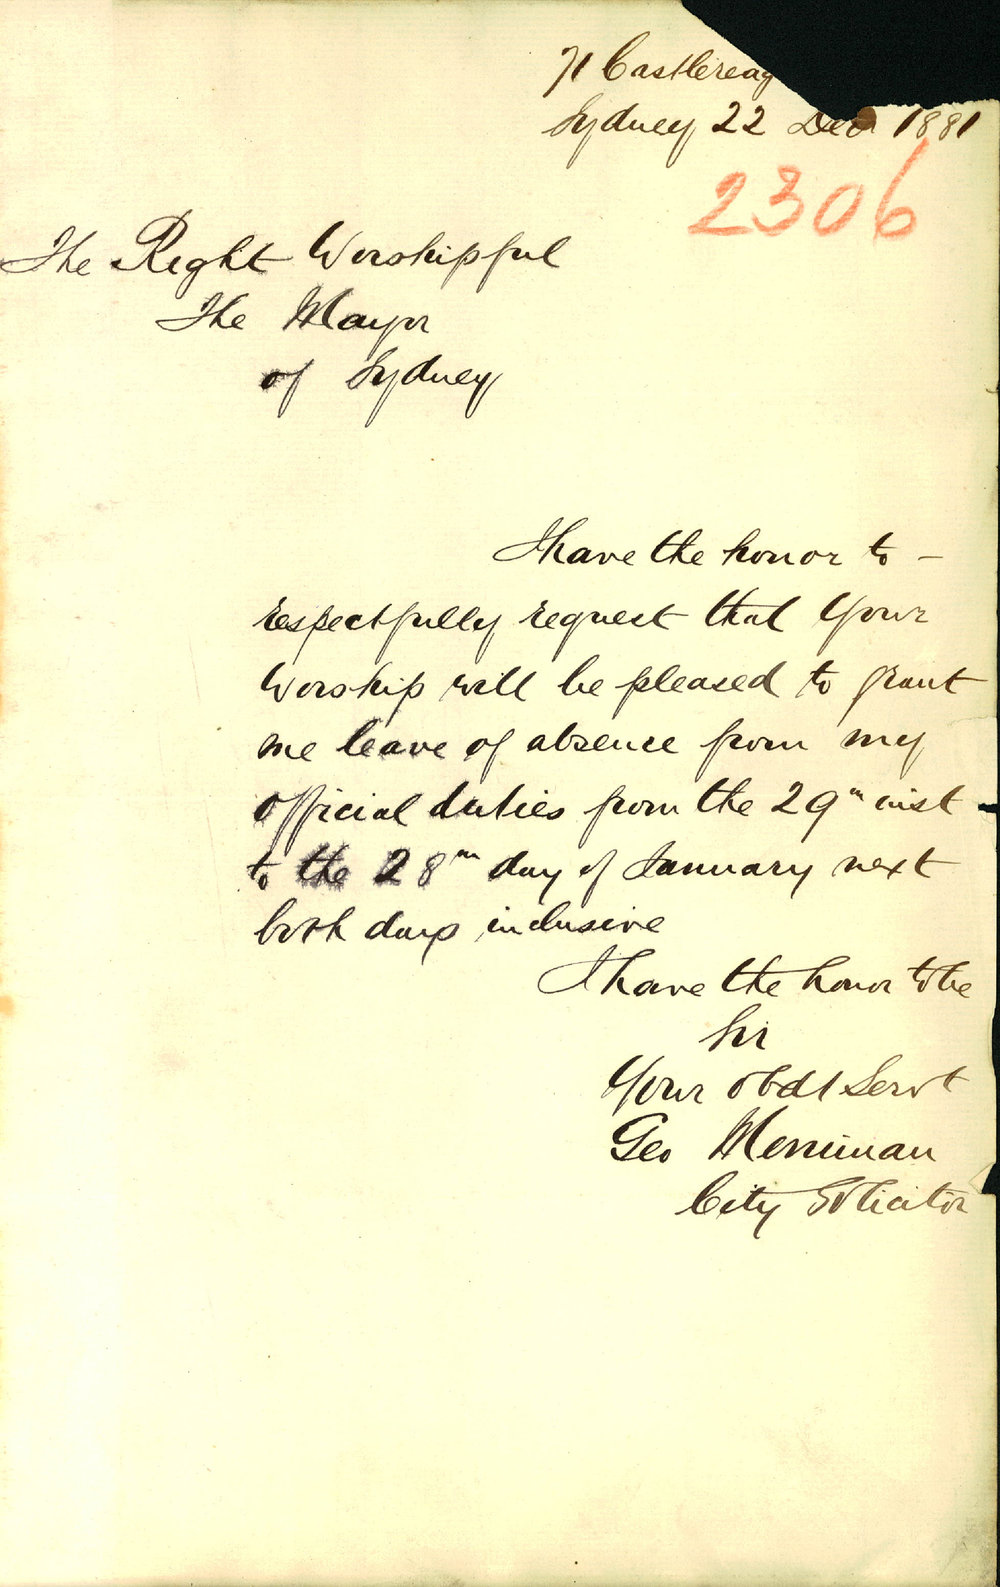 71 Castlereag
Sydney 22 Dec 1881
2306
The Right Worshipful
The Mayor
of Sydney
I have the honor to –
respectfully request that Your
Worship will be pleased to grant
me leave of absence from my
official duties from the 29th inst
to the 28th day of January next
both days inclusive
I have the honor to be
Sir
Your obdt Servt
Geo Merriman
City Solicitor